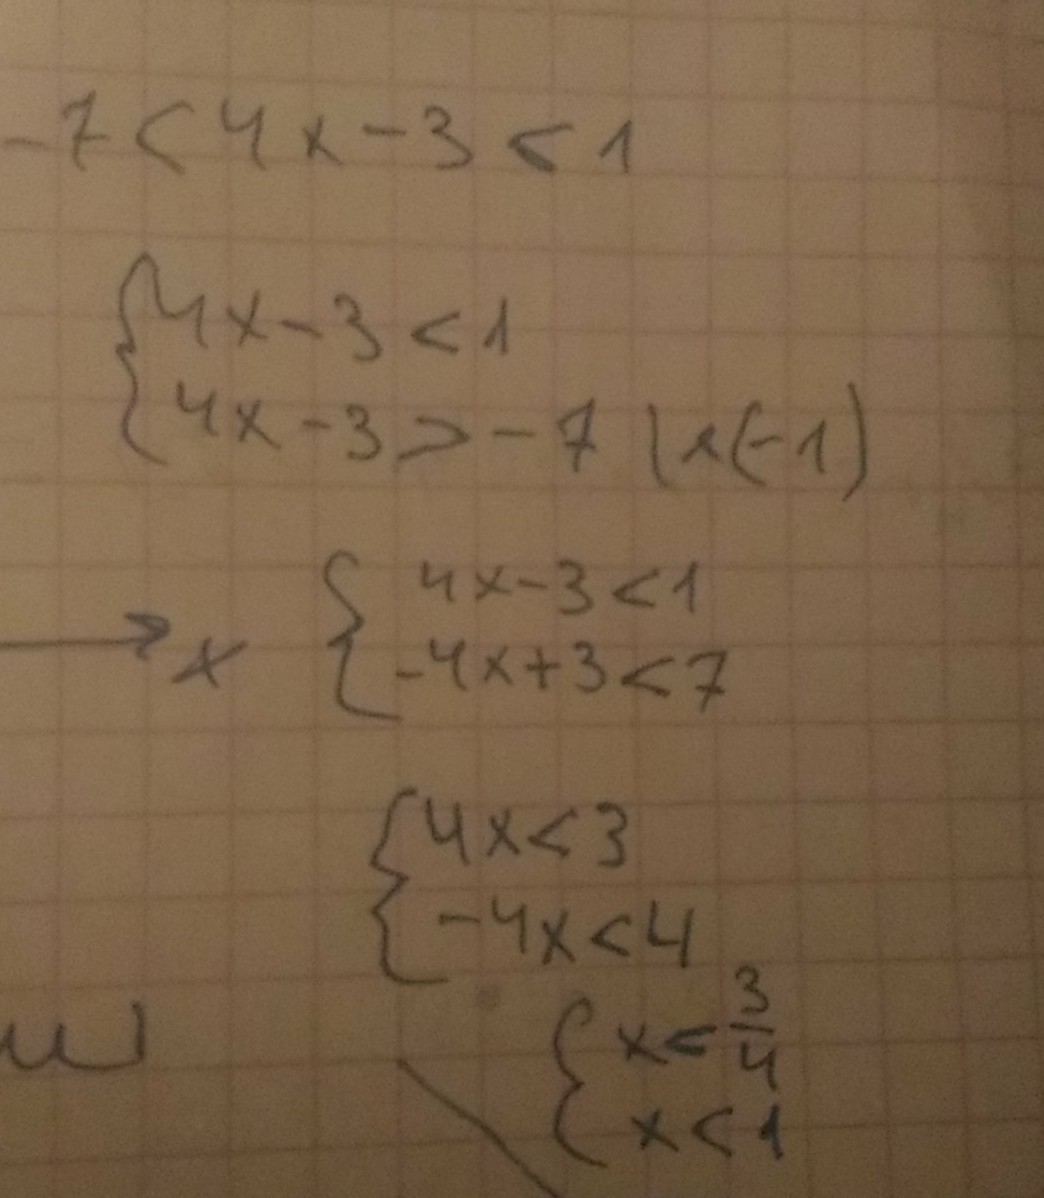 -7 < 4x - 3 < 1
{ 4x - 3 < 1
4x - 3 > -7 | x(-1)
x { 4x - 3 < 1
-4x + 3 < 7
{ 4x < 3
-4x < 4
{ x < 3/4
x < 1